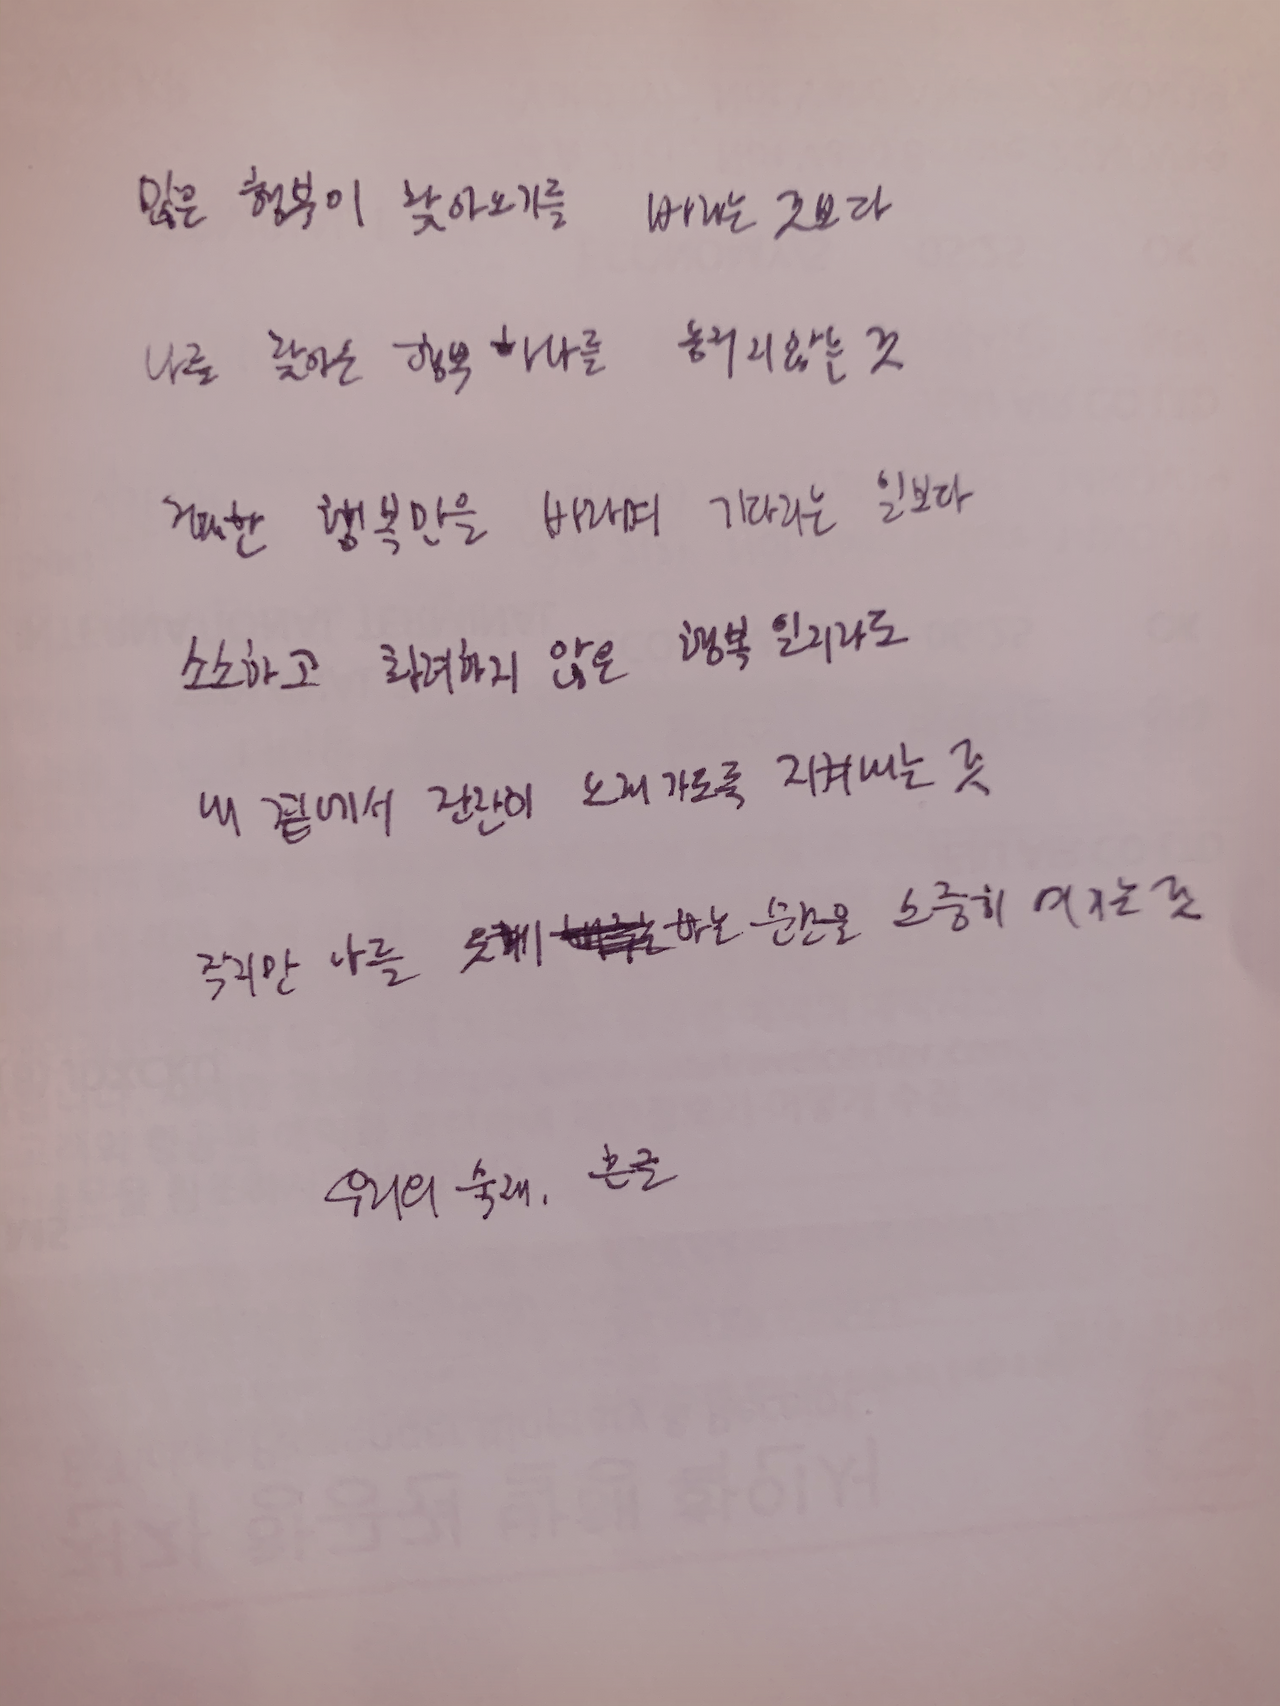 많은 행복이 찾아오기를 바라는 것보다
나를 찾아온 행복 하나를 놓치지않는 것
거대한 행복만을 바라며 기다리는 일보다
소소하고 화려하지 않은 행복일지라도
내 곁에서 잔잔히 오래가도록 지켜내는 것
작지만 나를 웃게 하는 순간을 소중히 여기는 것
우리의 술래, 흔글